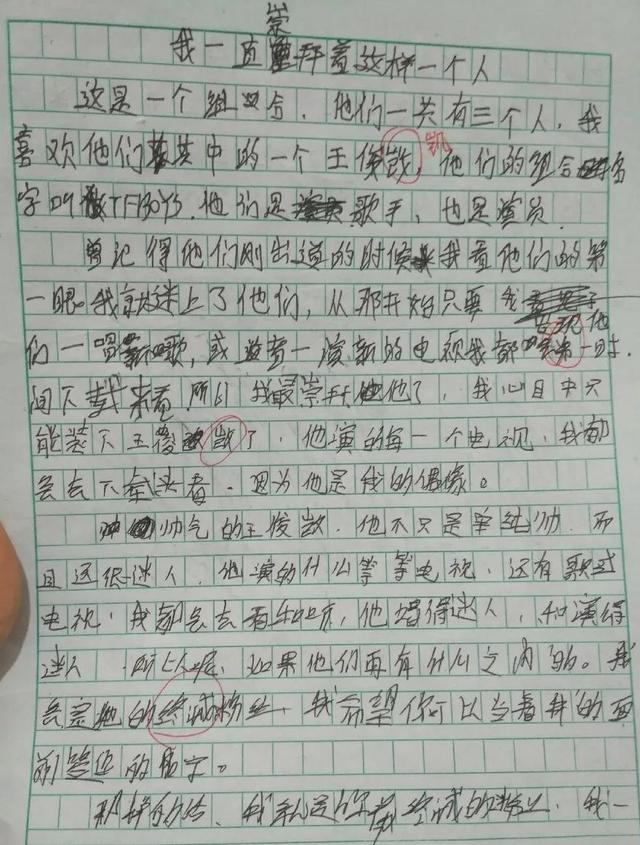 崇
我一直崇拜着这样一个人
这是一个组合，他们一共有三个人，我
喜欢他们其中的一个王俊凯，他们的组合名
字叫做TFBOYS，他们是歌手，也是演员
曾记得他们刚出道的时候我看他们的第
一眼。我就迷上了他们，从那开始只要我
们一唱新歌，或者一演新的电视我都会第一时
间下载来看，所以我最崇拜他了，我心目中只
能装下王俊了，他演的每一个电视，我都
会去下载来看，因为他是我的偶像。
帅气的王俊，他不只是单纯帅，而
且还很迷人，他演的什么等等电视，还有
电视，我都会去看，他唱得迷人，和演得
迷人，所以呢，如果他们再有什么之内的。我
会是他的粉丝，我希望你可以当着我的面
前签您的名字。
那样的话，我就是你的粉丝，我一